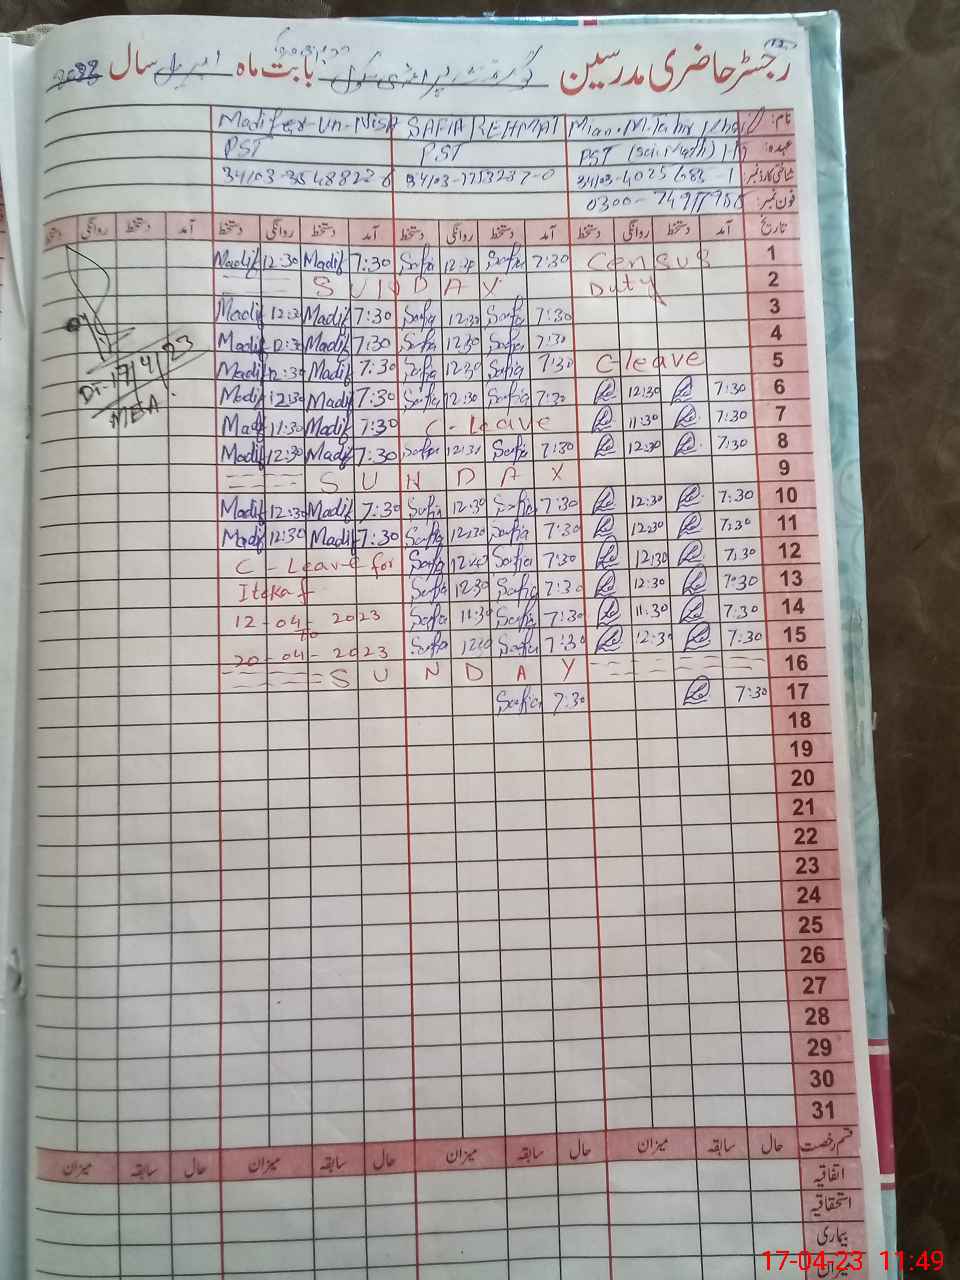 رجسٹر حاضری مدرسین گورنمنٹ پرائمری سکول بابت ماہ اپریل سال
نام: Mian. M. Tahir SAFIA REHMAT Madifer-un-Nisa
عہدہ: PST (Sci, Math) PST PST
شناختی کارڈ نمبر:
فون نمبر:
تاریخ آمد دستخط روانگی دستخط آمد دستخط روانگی دستخط آمد دستخط روانگی دستخط آمد دستخط روانگی دستخط
Madif 12:30 Madif 7:30 Safia 12:30 Safia 7:30 Census 1
SUNDAY Duty 2
Madif 12:30 Madif 7:30 Safia 12:30 Safia 7:30 3
Madif 12:30 Madif 7:30 Safia 12:30 Safia 7:30 4
Madif 12:30 Madif 7:30 Safia 12:30 Safia 7:30 C-leave 5
Madif 12:30 Madif 7:30 Safia 12:30 Safia 7:30 12:30 7:30 6
Madif 11:30 Madif 7:30 C-Leave 11:30 7:30 7
Madif 12:30 Madif 7:30 Safia 12:30 Safia 7:30 12:30 7:30 8
SUNDAY 9
Madif 12:30 Madif 7:30 Safia 12:30 Safia 7:30 12:30 7:30 10
Madif 12:30 Madif 7:30 Safia 12:30 Safia 7:30 12:30 7:30 11
C-Leave for Safia Safia 7:30 12:30 7:30 12
Itekaf Safia 12:30 Safia 7:30 12:30 7:30 13
12-04-2023 Safia 11:30 Safia 7:30 11:30 7:30 14
To
20-04-2023 Safia Safia 7:30 12:30 7:30 15
SUNDAY 16
Safia 7:30 7:30 17
18
19
20
21
22
23
24
25
26
27
28
29
30
31
قسم رخصت حال سابقہ میزان حال سابقہ میزان حال سابقہ میزان حال سابقہ میزان
اتفاقیہ
استحقاقیہ
بیماری
میزان
Dt-17/4/23
MEA
17-04-23 11:49